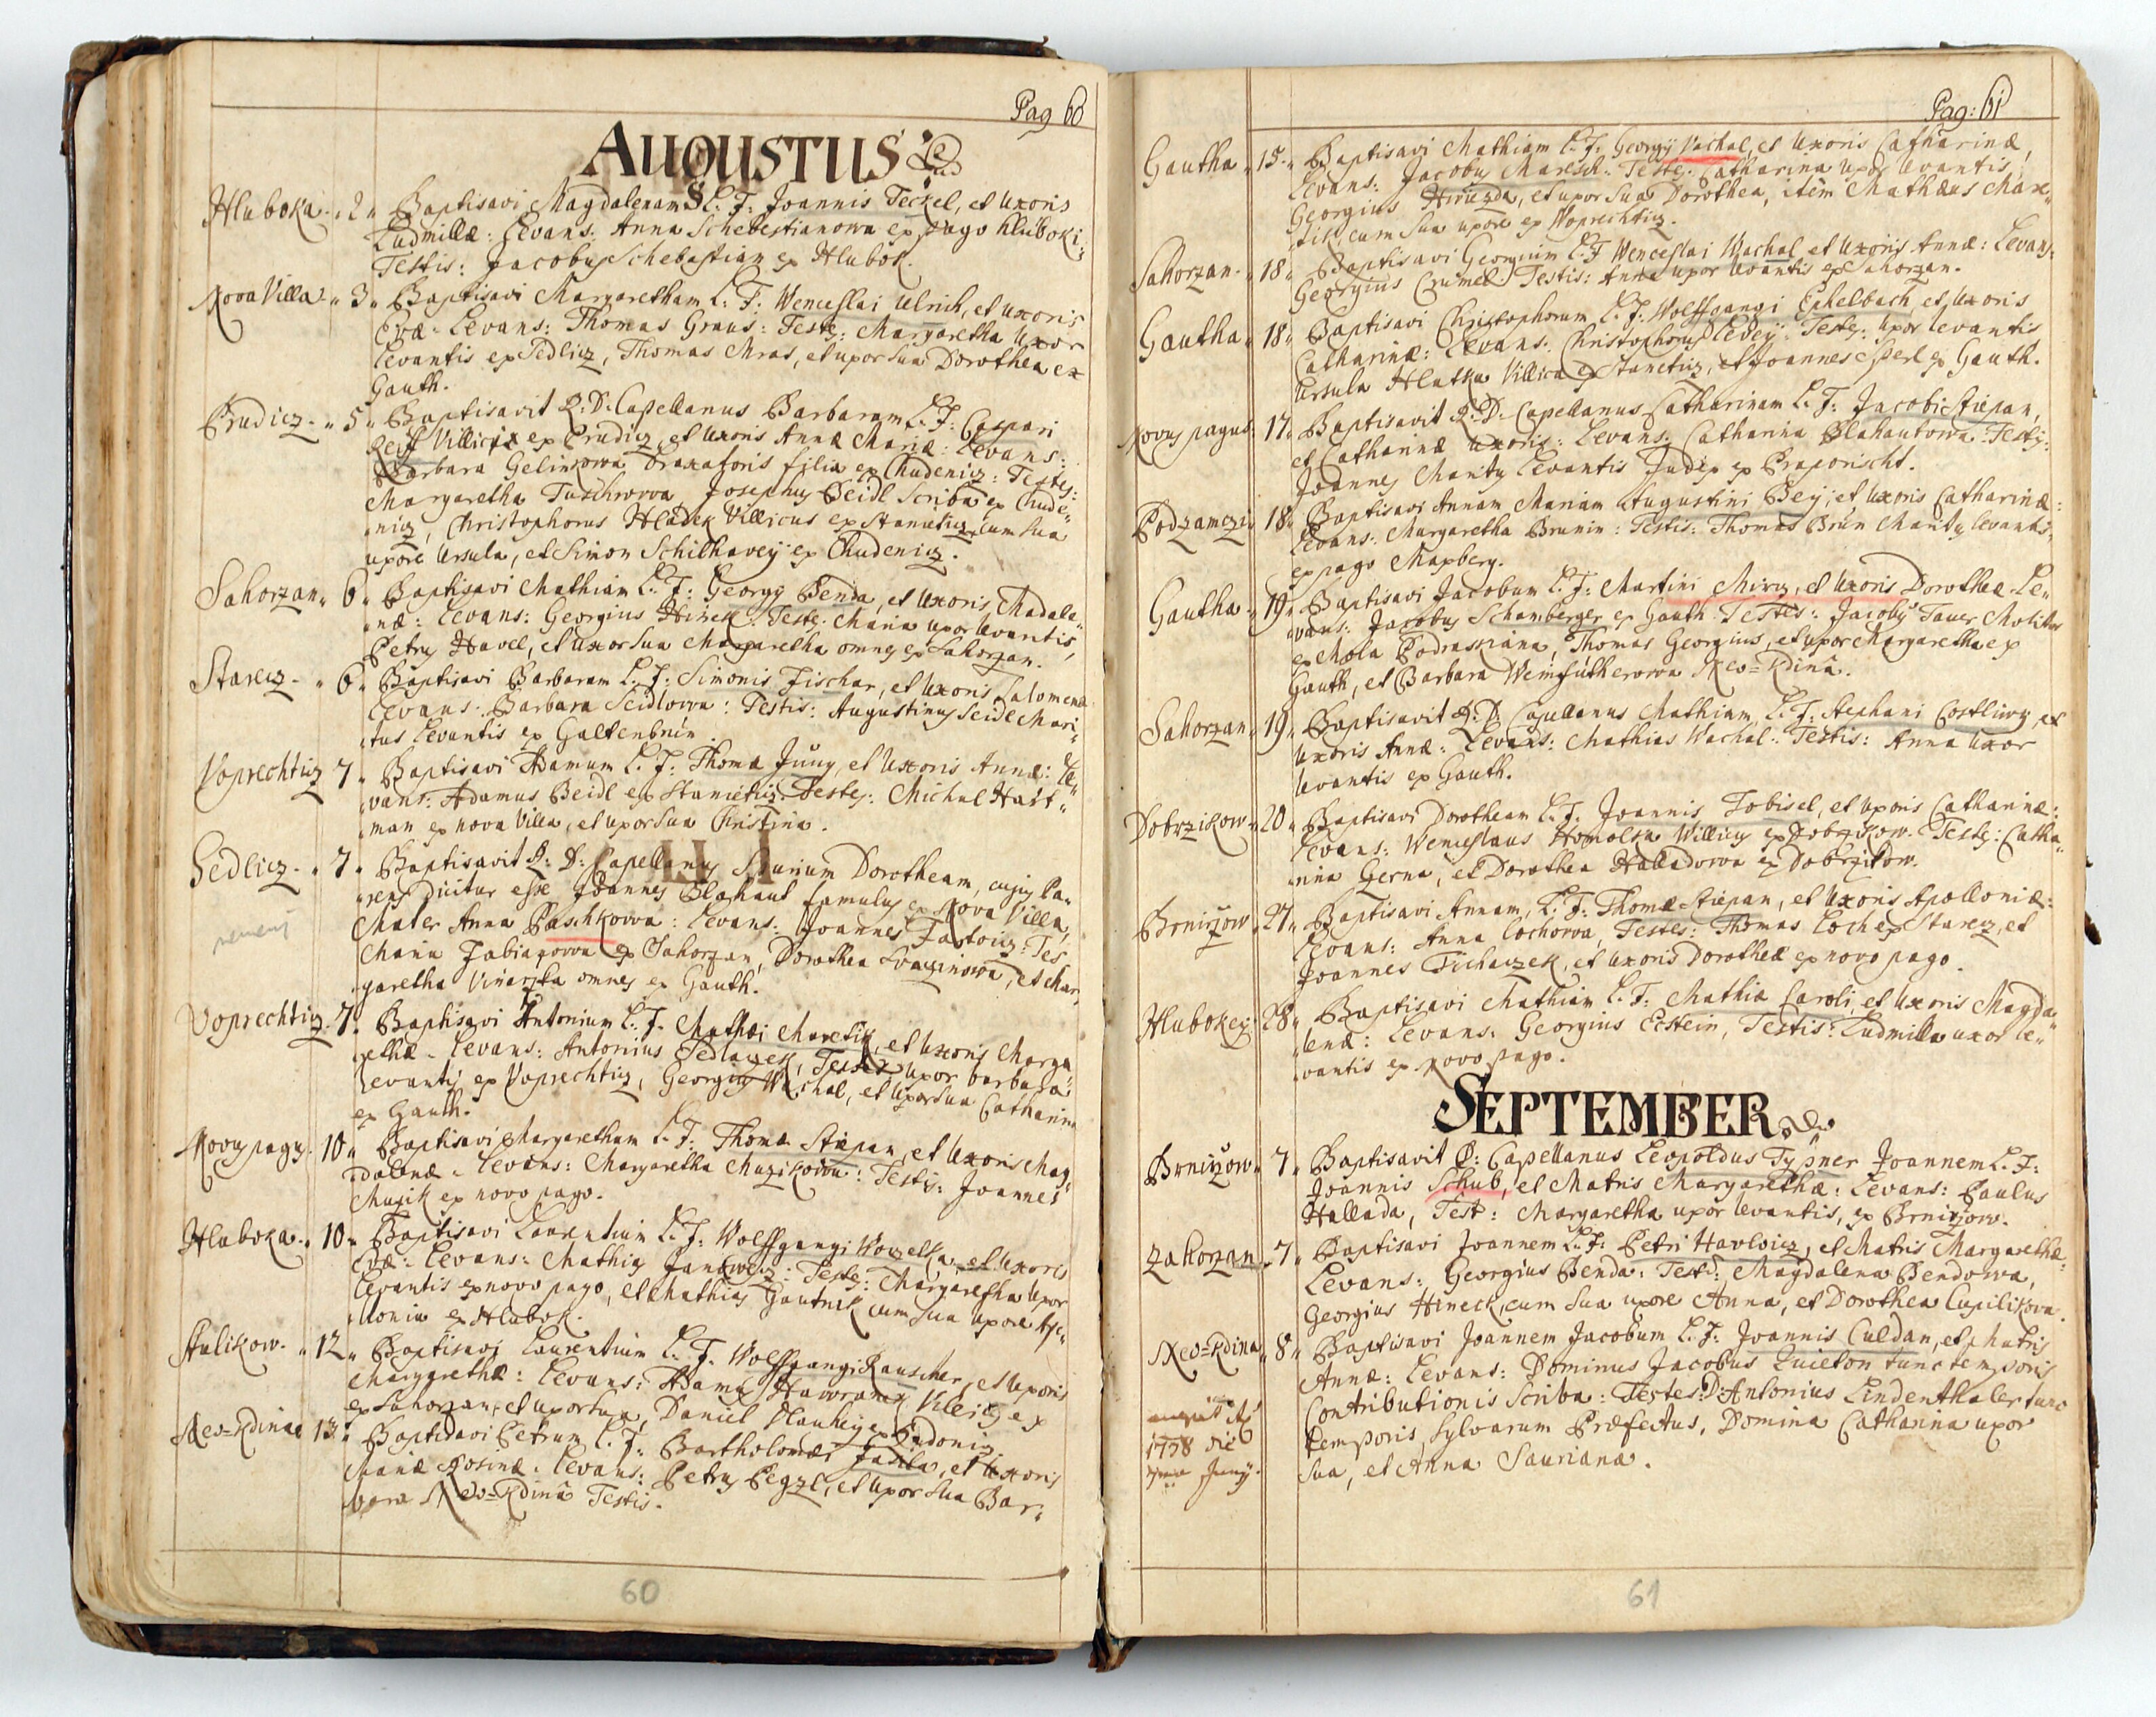 Pag 60
AUGUSTUS
Hluboka 2 Baptisavi Magdalenam L. F. Joannis Teckel, et Uxoris
Ludmillæ: Levans: Anna Schebestianowa ex pago Hluboki:
Testis: Jacobus Schebastian ex Hlubok.
Nova Villa 3 Baptisavi Margaretham L. F. Wenceslai Ulrich, et uxoris
Evæ: Levans: Thomas Graus: Testes: Margaretha Uxor
levantis ex Sedlicz, Thomas Mras, et uxor sua Dorothea ex
Gauth.
Prudicz 5 Baptisavit R: D: Capellanus Barbaram L. F. Caspari
Reiff Villici ex Prudicz et Uxoris Annæ Mariæ: Levans:
Barbara Gelinkowa Braxatoris filia ex Chudenicz: Testes:
Margaretha Josephus Beidl Scriba ex Chude„
nicz, Christophorus Hladek Villicus ex Stanieticz cum sua
uxore Ursula, et Simon Schilhavey ex Chudenicz.
Sahorzan 6 Baptisavi Mathiam L. F: Georgy Benda, et Uxoris Madale„
næ: Levans: Georgius Hinek: Testes: Maria uxor levantis,
Petrus Havel, et Uxor sua Margaretha omnes ex Sahorzan.
Starecz 6 Baptisavi Barbaram L. F: Simonis Fischer, et Uxoris Salomenæ
Levans: Barbara Seidlowa: Testis: Augustinus Seidl Mari„
tus Levantis ex Galtenbrun.
Voprechticz 7 Baptisavi Adamum L. F: Thomæ Jung, et Uxoris Annæ: Le„
vans: Adamus Beidl ex Stanieticz. Testes: Michal Hart„
man ex nova Villa, et uxor sua Christina.
Sedlicz 7 Baptisavit R: D: Capellanus Spurium Dorotheam, cujus Pa„
rens dicitur esse Joannes Blahaut famulus ex Nova Villa,
Mater Anna Paschkowa: Levans: Joannes: Tes
Maria Fabianowa ex Sahorzan, Dorothea, et Mar,
garetha Vinarzka omnes ex Gauth.
Voprechticz 7 Baptisavi Antonium L. F. Mathæi Maretik, et Uxoris Marga„
rethæ. Levans: Antonius Sedlaczek, Testes uxor Barbara
Levantis ex Voprechticz, Georgius Wachal, et Uxor sua Catharina
ex Gauth.
Novus pagus 10 Baptisavi Margaretham L. F: Thomæ Stiepan, et Uxoris Mag„
dalenæ. Levans: Margaretha Muzikowa: Testis: Joannes
Muzik ex novo pago.
Hluboka 10 Baptisavi Laurentium L. F: Wolffgangi Worzelka, et Uxoris
Evæ: Levans: Mathias Jankowecz: Testes: Margaretha Uxor
Levantis ex novo pago, et Mathias Gautnik cum sua uxore Apo„
llonia ex Hlubok.
Stulikow 12 Baptisavi Laurentium L. F. Wolffgangi Rauscher, et Uxoris
Margarethæ: Levans: Adamus Hawranek Villicus ex
Sahorzan, et uxor sua, Daniel
Neo=Kdinæ 13 Baptisavi Petrum L. F. Bartholomæi Jakla, et Uxoris
Mariæ Rosinæ: Levans: Petrus Pegzl, et uxor sua Bar„
bara Neo=Kdina Testis.
60
Pag: 61
Gautha 15 Baptisavi Mathiam L. F: Georgy Vachal, et Uxoris Catharinæ,
Levans: Jacobus Maresch: Testes: Catharina uxor levantis,
Georgius Hwiezda, et uxor sua Dorothea, item Mathæus Mare„
tik, cum sua uxore ex Voprechticz.
Sahorzan 18 Baptisavi Georgium L. F Wenceslai Wachal et Uxoris Annæ: Levans:
Georgius Crumel Testis: Anna uxor levantis ex Sahorzan.
Gautha 18 Baptisavi Christophorum L. F: Wolffgangi Eichelbach, et Uxoris
Catharinæ: Levans: Christophorus Ledey: Testes: Uxor levantis
Ursula Hlatka Villica ex Staneticz, et Joannes Esserl ex Gauth.
Novus pagus 17 Baptisavit R: D: Capellanus Catharinam L. F: Jacobi Stiepan,
et Catharinæ Uxoris: Levans: Catharina Blahautowa: Testis:
Joannes Maritus Levantis Judex ex Praporischt.
Podzamczi 18 Baptisavi Annam Mariam Augustini Bey, et Uxoris Catharinæ:
Levans: Margaretha Brunin: Testis: Thomas Brün Maritus levantis
ex pago Maxberg.
Gautha 19 Baptisavi Jacobum L. F: Martini Mirez, et Uxoris Dorotheæ Le„
vans: Jacobus Schamberger ex Gauth Testes: Jacobus Tauer Molitor
ex Mola Podraskiana, Thomas Georgius, et uxor Margaretha ex
Gauth, et Barbara Weinfutherowa Neo=Kdinâ.
Sahorzan 19 Baptisavit R: D: Capellanus Mathiam L. F: Stephani Costliwy et
Uxoris Annæ: Levans: Mathias Wachal: Testis: Anna Uxor
levantis ex Gauth.
Dobrzikow 20 Baptisavi Dorotheam L. F: Joannis Tobisel, et uxoris Catharinæ:
Levans: Wenceslaus Homolka Willicus ex Dobrzikow. Testes: Catha„
rina Gerna, et Dorothea Halladowa ex Dobrzikow.
Brnirzow 27 Baptisavi Annam, L. F: Thomæ Stiepan, et Uxoris Apolloniæ:
Levans: Anna Cochowa, Testes: Thomas Coch ex Starez, et
Joannes Tichaczek, et uxoris Dorotheæ ex novo pago.
Hlubokey 28 Baptisavi Mathiam L. F: Mathiæ Caroli, et Uxoris Magda„
lenæ: Levans: Georgius Ecstein, Testis: Ludmilla uxor le„
vantis ex novo pago.
SEPTEMBER
Brnirzow 7 Baptisavit P: Capellanus Leopoldus Typner Joannem L. F:
Joannis Schub, et Matris Margarethæ: Levans: Paulus
Hallada, Test: Margaretha uxor levantis, ex Brnirzow.
Zahorzan 7 Baptisavi Joannem L. F: Petri Havlowicz, et Matris Margarethæ
Levans: Georgius Benda: Test: Magdalena Bendowa,
Georgius Hineck, cum sua uxore Anna, et Dorothea Cupilikova.
Neo=Kdina 8 Baptisavi Joannem Jacobum L. F: Joannis Culdan, et Matris
Annæ: Levans: Dominus Jacobus Quieton tunc temporis
Contributionis Scriba: Testes: D: Antonius Lindenthaler tunc
temporis, Sylvarum Præfectus, Domina Catharina uxor
sua, et Anna Sauriana.
1758 die
Juny.
61